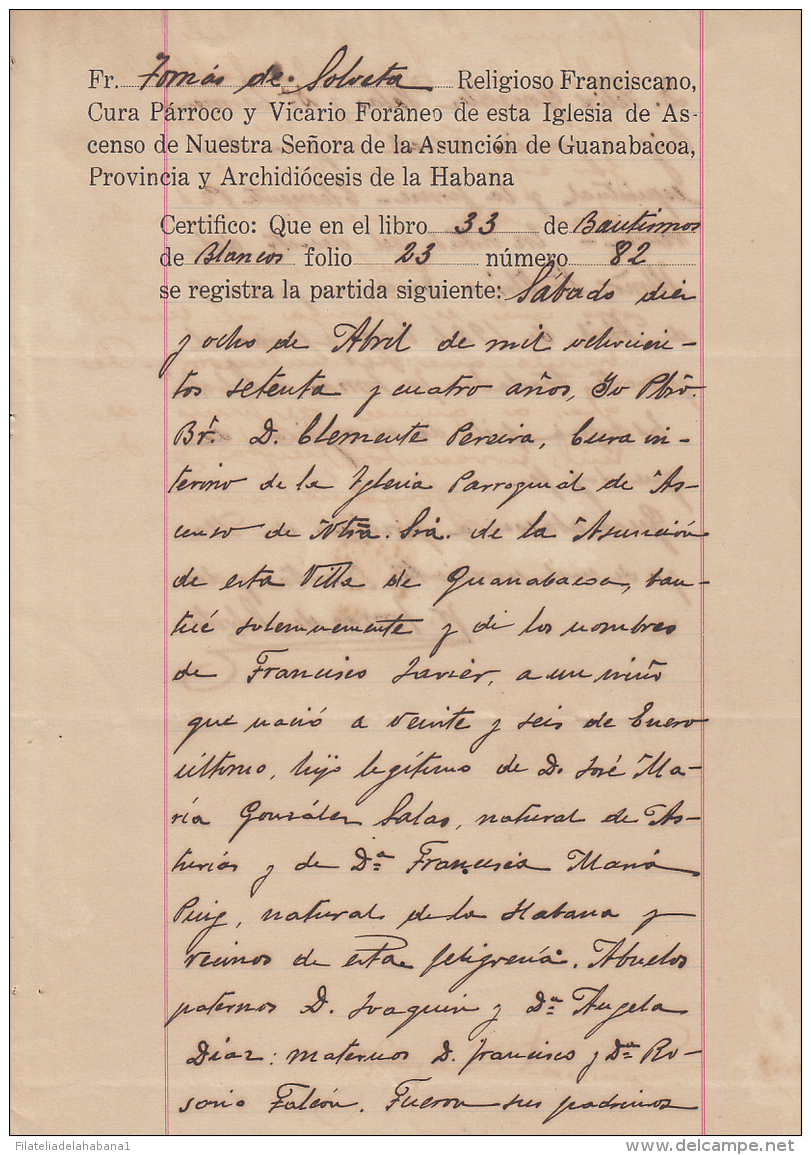 Fr. Tomás de Solveta Religioso Franciscano,
Cura Párroco y Vicario Foráneo de esta Iglesia de As-
censo de Nuestra Señora de la Asunción de Guanabacoa,
Provincia y Archidiócesis de la Habana
Certifico: Que en el libro 33 de Bautismos
de Blancos folio 23 número 82
se registra la partida siguiente: Sábado diez
y ocho de Abril de mil ochocien-
tos setenta y cuatro años, Yo Pbro.
Br. D. Clemente Pereira, Cura in-
terino de la Yglesia Parroquial de As-
censo de Ntra. Sra. de la Asunción
de esta Villa de Guanabacoa, bau-
ticé solemnemente y di los nombres
de Francisco Javier, a un niño
que nació a veinte y seis de Enero
último, hijo legítimo de D. José Ma-
ría González Salas, natural de As-
turias y de Dª Francisca María
Puig, natural de la Habana y
vecinos de esta feligresía. Abuelos
paternos D. Joaquin y Dª Angela
Díaz: maternos D. Francisco y Dª Ro-
sario Falcón. Fueron sus padrinos
Filateliadelahabana1
delcampe.net